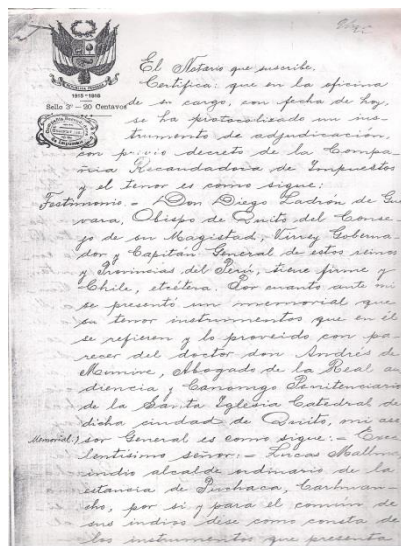 1915-1916
Sello 3º - 20 Centavos
El Notario que suscribe.
Certifica: que en la oficina
de su cargo, con fecha de hoy,
se ha protocolizado un ins-
trumento de adjudicación,
con previo decreto de la Compa-
ñia Recaudadora de Impuestos
y el tenor es como sigue:
Testimonio.- Don Diego Ladrón de Gue
vara, Obispo de Quito del Conse-
jo de su Magistad, Virrey Goberna-
dor y Capitán General de estos reinos
y Provincias del Perú, tierra firme y
Chile, etcétera. Por cuanto ante mi
se presentó un memorial que
su tenor instrumentos que en él
se refieren y lo proveido con pa-
recer del doctor don Andrés de
Munive, Abogado de la Real au
diencia y Canonigo Penitenciario
de la Santa Yglesia Catedral de
dicha ciudad de Quito, mi ase
Memorial.) sor General es como sigue:- Exce
lentisimo señor:- Lucas Mallma,
indio alcalde ordinario de la
estancia de Puchaca, Carhuan-
cho, por si y para el común de
sus indios dese como consta de
los instrumentos que presenta